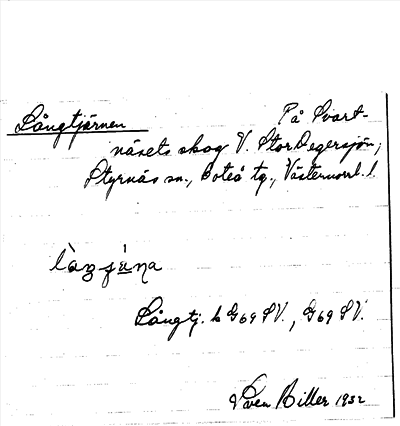 Långtjärnen
På Svart-
näsets skog V. Stor Degersjön,
Styrnäs sn., Boteå tg., Västernorrl. l.
Långtj. b G 69 SV., G 69 SV.
Sven Biller 1932